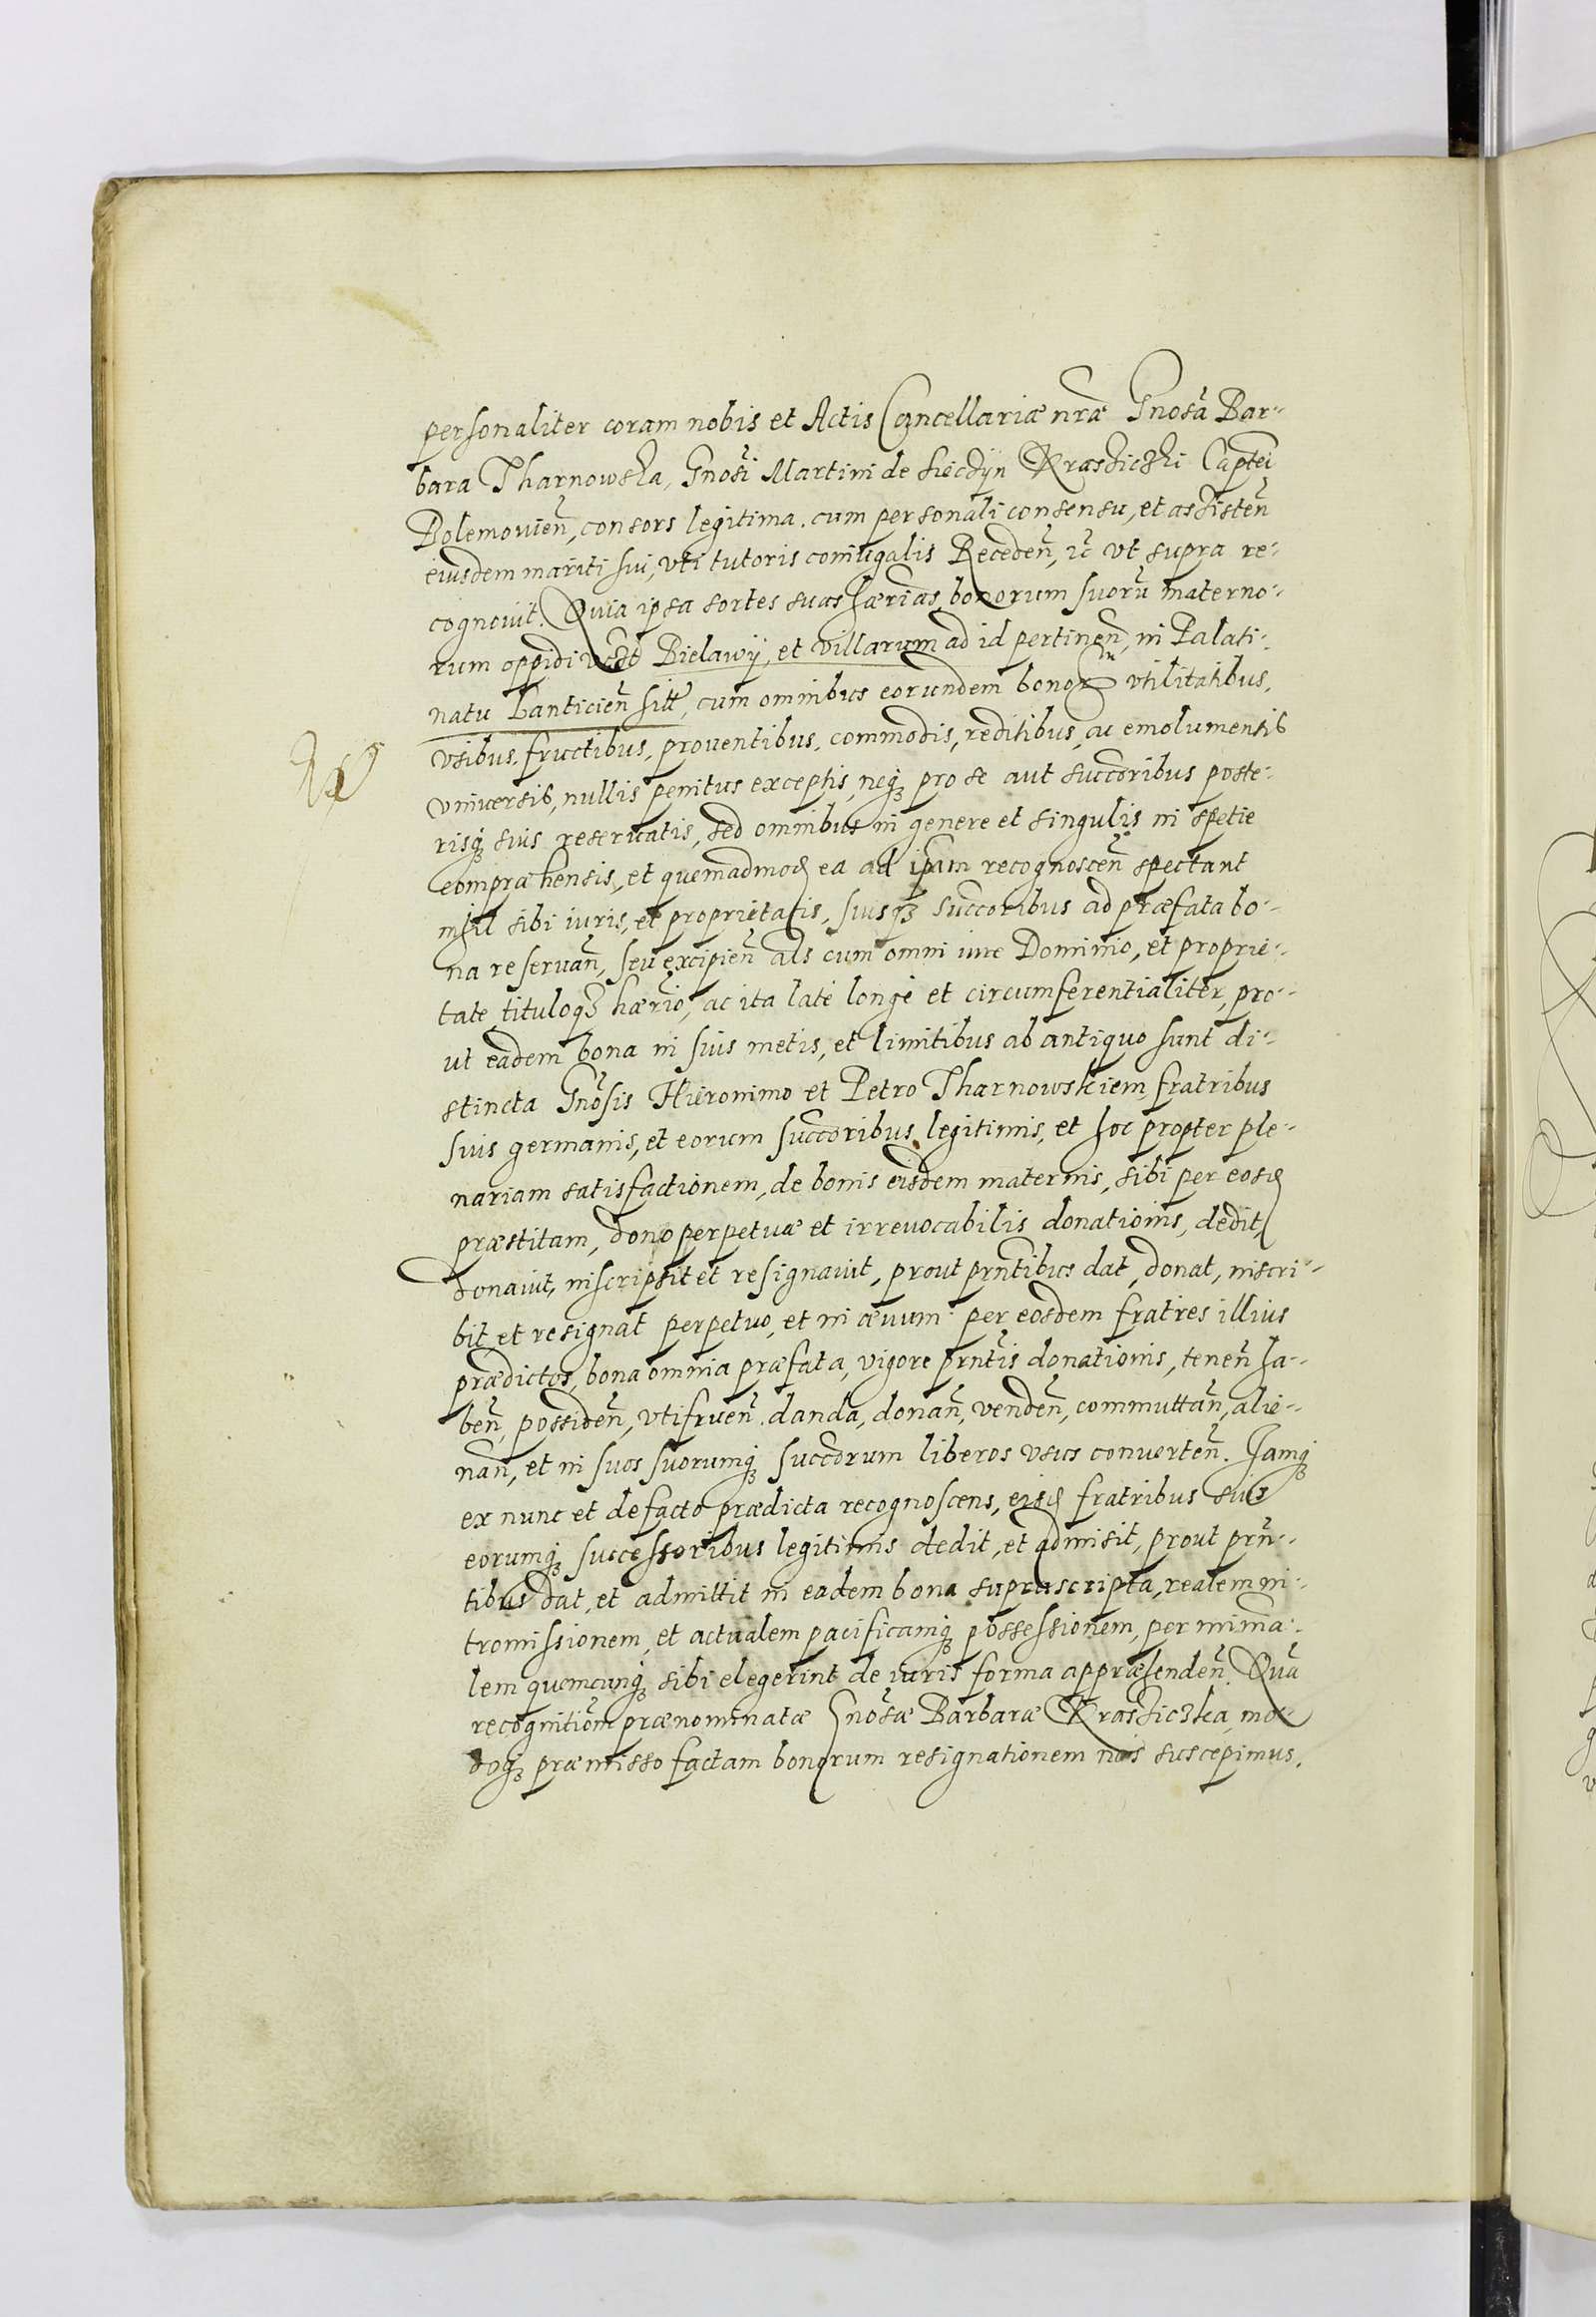 personaliter coram nobis et Actis Cancellariæ nr̃æ Gnosa Bar-
bara Tharnowska, Gnosi Martini de Siecżÿn Krasiczki Captei
Bolemouien̄, consors legitima. cum personali consensu, et assisten̄
eiusdem mariti sui, vti tutoris coniugalis Receden̄, ut supra re-
cognouit. Quia ipsa sortes suas hæridas bonorum suorū materno-
rum oppidi Bielawÿ, et villarum ad id pertinen̄, in Palati-
natu Lanticien̄ sitt, cum omnibus eorundem bonorum vtilitatibus,
vsibus, fructibus, prouentibus, commodis, reditibus, ac emolumentis
vniuersis, nullis penitus exceptis, neq3 pro se aut succoribus poste-
risq3 suis reseruatis, sed omnibus in genere et singulis in spetie
compræhensis, et quemadmod ea ad ipsam recognoscen̄ spectant
nihil sibi iuris, et proprietatis, suisq3 succoribus ad præfata bo-
na reseruan̄, seu excipien̄ als cum omni iure Dominio, et proprie-
tate tituloq3 hærio, ac ita late longe et circumferentialiter, pro-
ut eadem bona in suis metis, et limitibus ab antiquo sunt di-
stincta Gnosis Hieronimo et Petro Tharnowskiem fratribus
suis germanis, et eorum succoribus legitimis, et hoc propter ple-
nariam satisfactionem, de bonis eisdem maternis, sibi per eosd
præstitam, dono perpetuæ et irreuocabilis donationis, dedit,
donauit, inscripsit et resignauit, prout prn̄tibus dat, donat, inscri-
bit et resignat perpetuo, et in æuum: per eosdem fratres illius
prædictos, bona omnia præfata, vigore prn̄tis donationis, tenen̄ ha-
ben̄, possiden̄, vtifruen̄. danda, donan̄, venden̄, commuttan̄, alie-
nan̄, et in suos suorumq3 succorum liberos vsus conuerten̄. Jamq3
ex nunc et de facto prædicta recognoscens, eisd fratribus suis
eorumq3 successoribus legitimis dedit, et admisit, prout prn̄-
tibus dat, et admittit in eadem bona suprascripta, realem in-
tromissionem, et actualem pacificamq3 possessionem, per minia-
lem quemcunq3 sibi elegerint de iuris forma appræhenden̄. Quā
recognitiōm prænominatæ Gnosæ Barbaræ Krasiczka, mo-
doq3 præmisso factam bonorum resignationem nōis suscepimus.